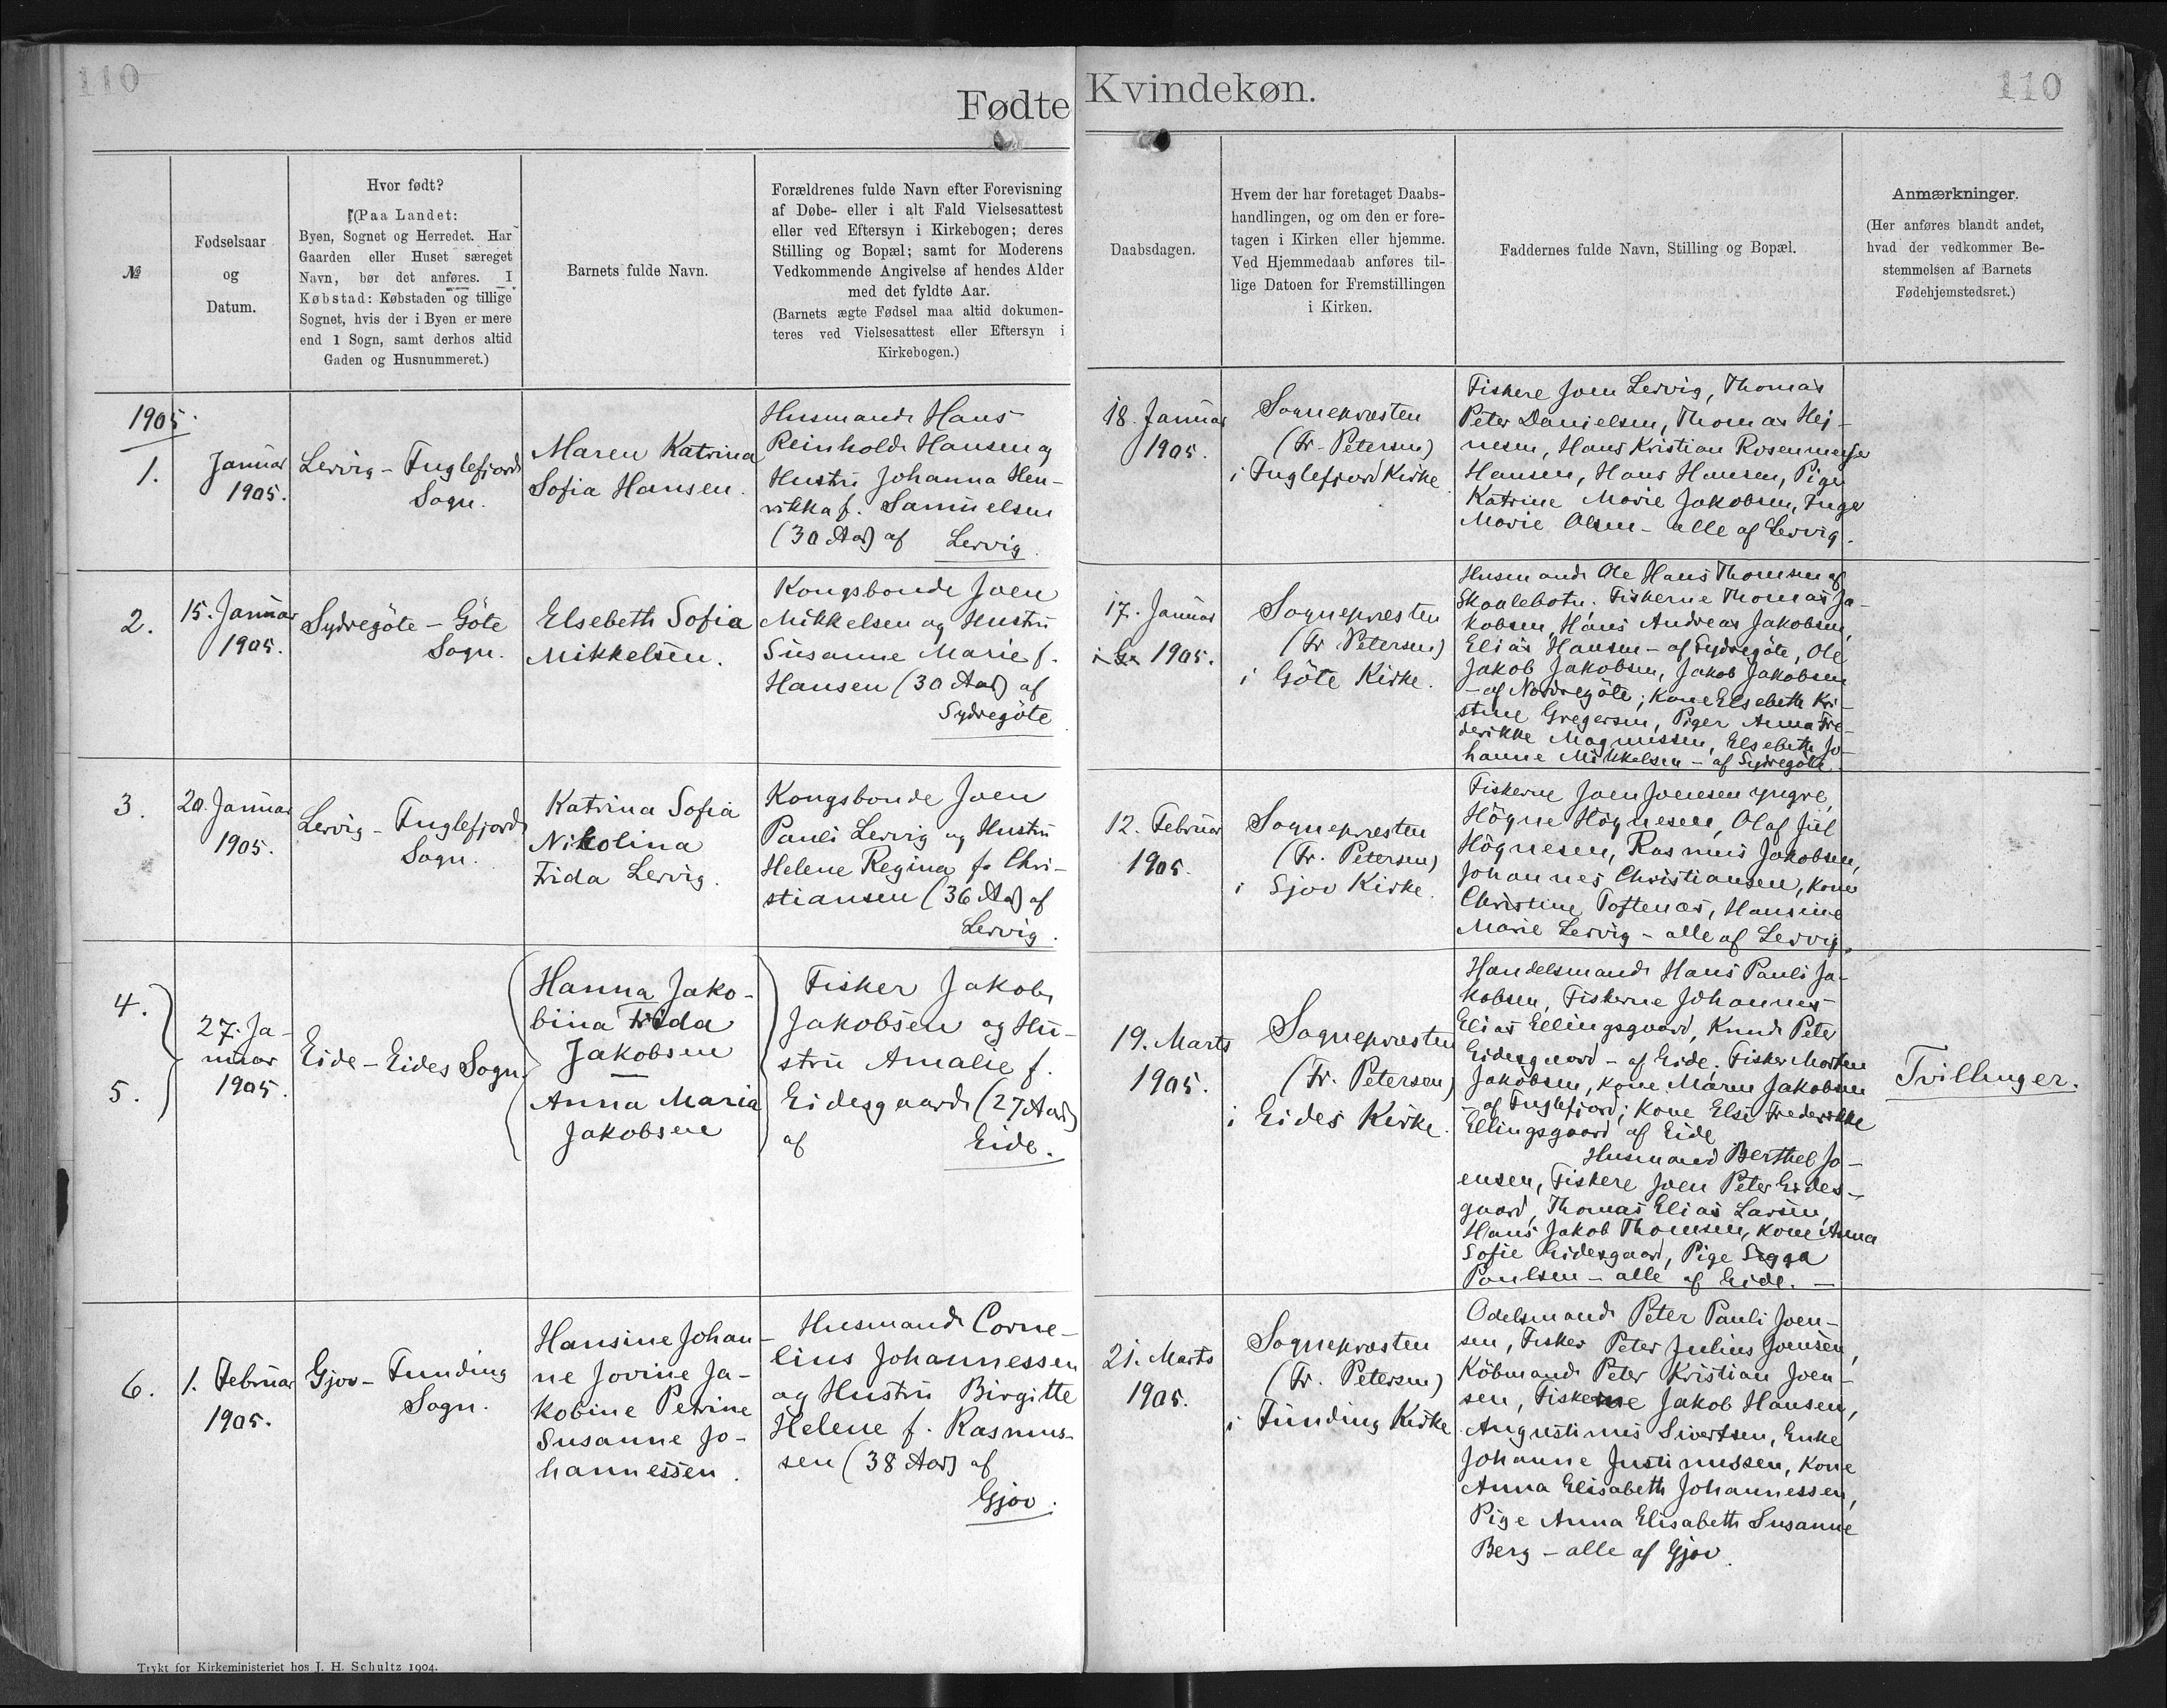 110
Fødte
Kvindekøn.
110
№
Fødselsaar
og
Datum.
Hvor født?
(Paa Landet:
Byen, Sognet og Herredet. Har
Gaarden eller Huset særeget
Navn, bør det anføres. I
Købstad: Købstaden og tillige
Sognet, hvis der i Byen er mere
end 1 Sogn, samt derhos altid
Gaden og Husnummeret.)
Barnets fulde Navn.
Forældrenes fulde Navn efter Forevisning
af Døbe- eller i alt Fald Vielsesattest
eller ved Eftersyn i Kirkebogen; deres
Stilling og Bopæl; samt for Moderens
Vedkommende Angivelse af hendes Alder
med det fyldte Aar.
(Barnets ægte Fødsel maa altid dokumen-
teres ved Vielsesattest eller Eftersyn i
Kirkebogen.)
Daabsdagen.
Hvem der har foretaget Daabs-
handlingen, og om den er fore-
tagen i Kirken eller hjemme.
Ved Hjemmedaab anføres til-
lige Datoen for Fremstillingen
i Kirken.
Faddernes fulde Navn, Stilling og Bopæl.
Anmærkninger.
(Her anføres blandt andet,
hvad der vedkommer Be-
stemmelsen af Barnets
Fødehjemstedsret.)
1905.
1.
Januar
1905.
Lervig - Fuglefjord
Sogn.
Maren Katrina
Sofia Hansen.
Husmand Hans
Reinhold Hansen og
Hustru Johanna Hen-
rikka f. Samuelsen
(30 Aar) af Lervig.
18. Januar
1905.
Sognepræsten
(Fr. Petersen)
i Fuglefjord Kirke
Fiskere Joen Lervig, Thomas
Peter Danielsen, Thomas Hej-
nesen, Hans Kristian Rosenmeyer
Hansen, Hans Hansen, Pige
Katrine Marie Jakobsen, Inge
Marie Olsen - alle af Lervig.
2.
15. Januar
1905.
Sydregöte - Göte
Sogn.
Elsebeth Sofia
Mikkelsen.
Kongsbonde Joen
Mikkelsen og Hustru
Susanne Marie f.
Hansen (30 Aar) af
Sydregöte
17. Januar
1905.
Sognepræsten
(Fr Petersen)
i Göte Kirke.
Husmand Ole Hans Thomsen af
Skaalebotn. Fiskerne Thomas Ja-
kobsen, Hans Andreas Jakobsen,
Elias Hansen - af Sydregöte, Ole
Jakob Jakobsen, Jakob Jakobsen
- af Nordregöte; Kone Elsebeth Kri-
stine Gregersen, Piger Anna Fre-
derikke Magnussen, Elsebeth Jo-
hanne Mikkelsen - af Sydregöte.
3.
20. Januar
1905.
Lervig - Fuglefjord
Sogn.
Katrina Sofia
Nikolina
Frida Lervig.
Kongsbonde Joen
Pauli Lervig og Hustru
Helene Regina f. Chri-
stiansen (36 Aar) af
Lervig.
12. Februar
1905.
Sognepræsten
(Fr. Petersen)
i Gjov Kirke.
Fiskerne Joen Joensen yngre,
Högne Högnesen, Olaf Jul
Högnesen, Rasmus Jakobsen,
Johannes Christiansen, Koner
Christine Toftenæs, Hansine
Marie Lervig - alle af Lervig.
4.
5.
27. Ja-
nuar
1905.
Eide - Eides Sogn
Hanna Jako-
bina Frida
Jakobsen
Anna Maria
Jakobsen
Fisker Jakob
Jakobsen og Hu-
stru Amalie f.
Eidesgaard (27 Aar)
af Eide.
19. Marts
1905.
Sognepræsten
(Fr. Petersen)
i Eides Kirke.
Handelsmand Hans Pauli Ja-
kobsen, Fiskerne Johannes
Elias Ellingsgaard, Knud Peter
Eidesgaard - af Eide; Fisker Morten
Jakobsen, Kone Maren Jakobsen
- af Fuglefjord; Kone Else Frederikke
Ellingsgaard af Eide
Husmand Berthel Jo-
ensen, Fiskere Joen Peter Eides-
gaard, Thomas Elias Larsen,
Hans Jakob Thomsen, Kone Anna
Sofie Eidesgaard, Pige Sigga
Poulsen - alle af Eide. -
Tvillinger.
6.
1. Februar
1905.
Gjov - Funding
Sogn.
Hansine Johan-
ne Jovine Ja-
kobine Petrine
Susanne Jo-
hannessen.
Husmand Corne-
lius Johannessen
og Hustru Birgitte
Helene f. Rasmus-
sen (38 Aar) af
Gjov.
21. Marts
1905.
Sognepræsten
(Fr. Petersen)
i Funding Kirke
Odelsmand Peter Pauli Joen-
sen, Fisker Peter Julius Joensen,
Köbmand Peter Kristian Joen-
sen, Fiskerne Jakob Hansen,
Augustinus Sivertsen, Enke
Johanne Justinussen, Kone
Anna Elisabeth Johannessen,
Pige Anna Elisabeth Susanne
Berg - alle af Gjov.
Trykt for Kirkeministeriet hos J. H. Schultz 1904.